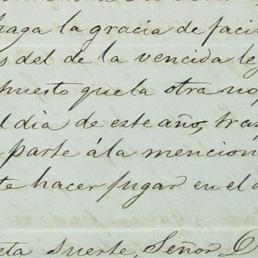 haga la gracia de faci
s del de la vencida le
puesto que la otra no
l dia de este año, tras
parte á la mencion
te hacer jugar en el
eta suerte, Señor D